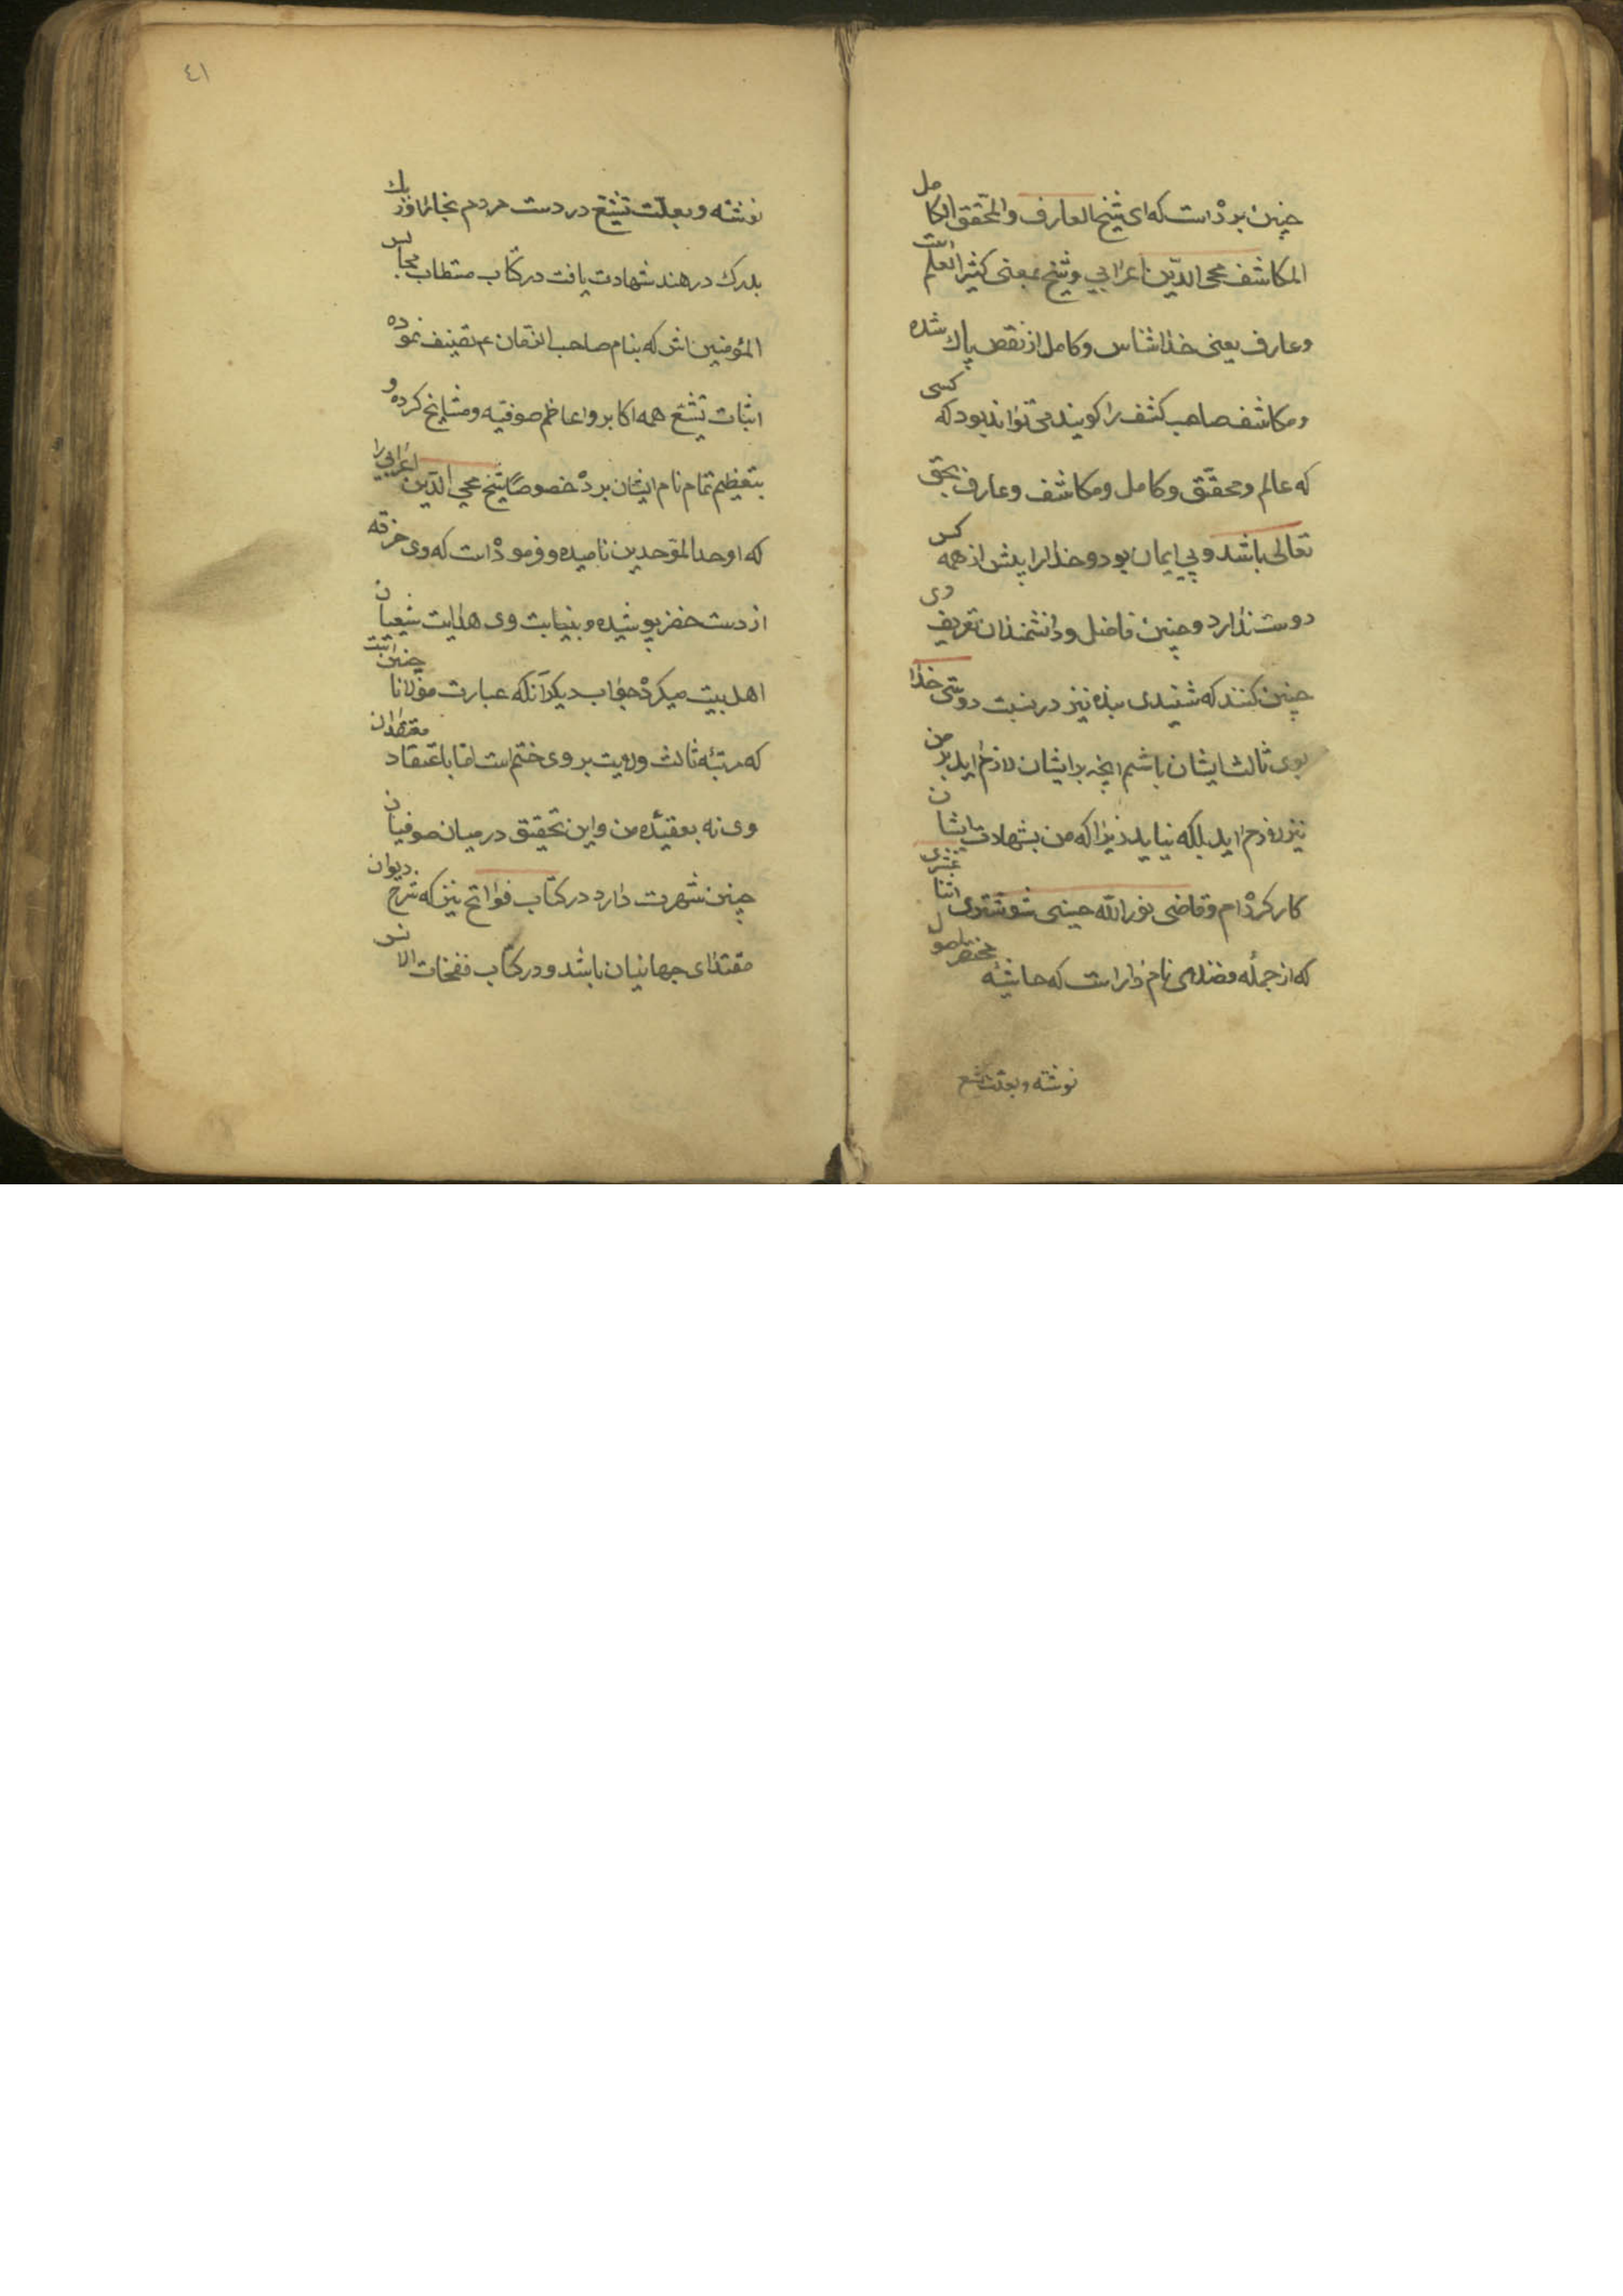 چنین بردْاست که ای شیخ العارف والمحقق الکامل
المکاشف محی الدّین اعرابی وشیخ بمعنی کثیر العلم است
وعارف یعنی خذاشناس وکامل از نقص پاك شده
ومکاشف صاحب کشف را کویند می تواند بود که کسی
که عالم ومحقّق وکامل ومکاشف وعارف بحق
تعالی باشد وبی ایمان بود وخذارا بیش از همه کس
دوست نذارد وچنین فاضل ودانشمندان تعریف وی
چنین کنند که شنیدی بنده نیز در نسبت دوستی خذا
بوی ثالث ایشان باشم انچه بر ایشان لازم اید بر من
نیز لازم اید بلکه نیاید زیرا که من بشهادت ایشان
کار کردْام وقاضی نورالله حسینی شوشتری اثنا عشری
که از جمله فضلای نام دار است که حاشیه مختصر اصول
نوشته وبعلت تشیع
٤١
نوشته وبعلّت تشیع در دست مردم بخارا اوز بك
بلدرك در هند شهادت یافت در کتاب مستطاب مجالس
المؤمنین اش که بنام صاحب الزمان ع تصنیف نموده
اثبات تشیع همه اکابر واعاظم صوفیه ومشایخ کرده و
بتعظیم تمام نام ایشان بردْ خصوصًا شیخ محی الدّین اعرابی را
که اوحد الموّحدین نامیده وفرموذْاست که وی خرقه
از دست خضر پوشیده وبنیابت وی هدایت شیعیان
اهل بیت میکردْ جواب دیکر آنکه عبارت مولانا چنین است
که مرتبۀ ثالث ولایت بر وی ختم است امّا باعتقاد معتقدان
وی نه بعقیدۀ من واین تحقیق در میان صوفیان
چنین شهرت دارد در کتاب فواتح نیز که شرح دیوان
مقتدای جهانیان باشد ودر کتاب نفحات الانس